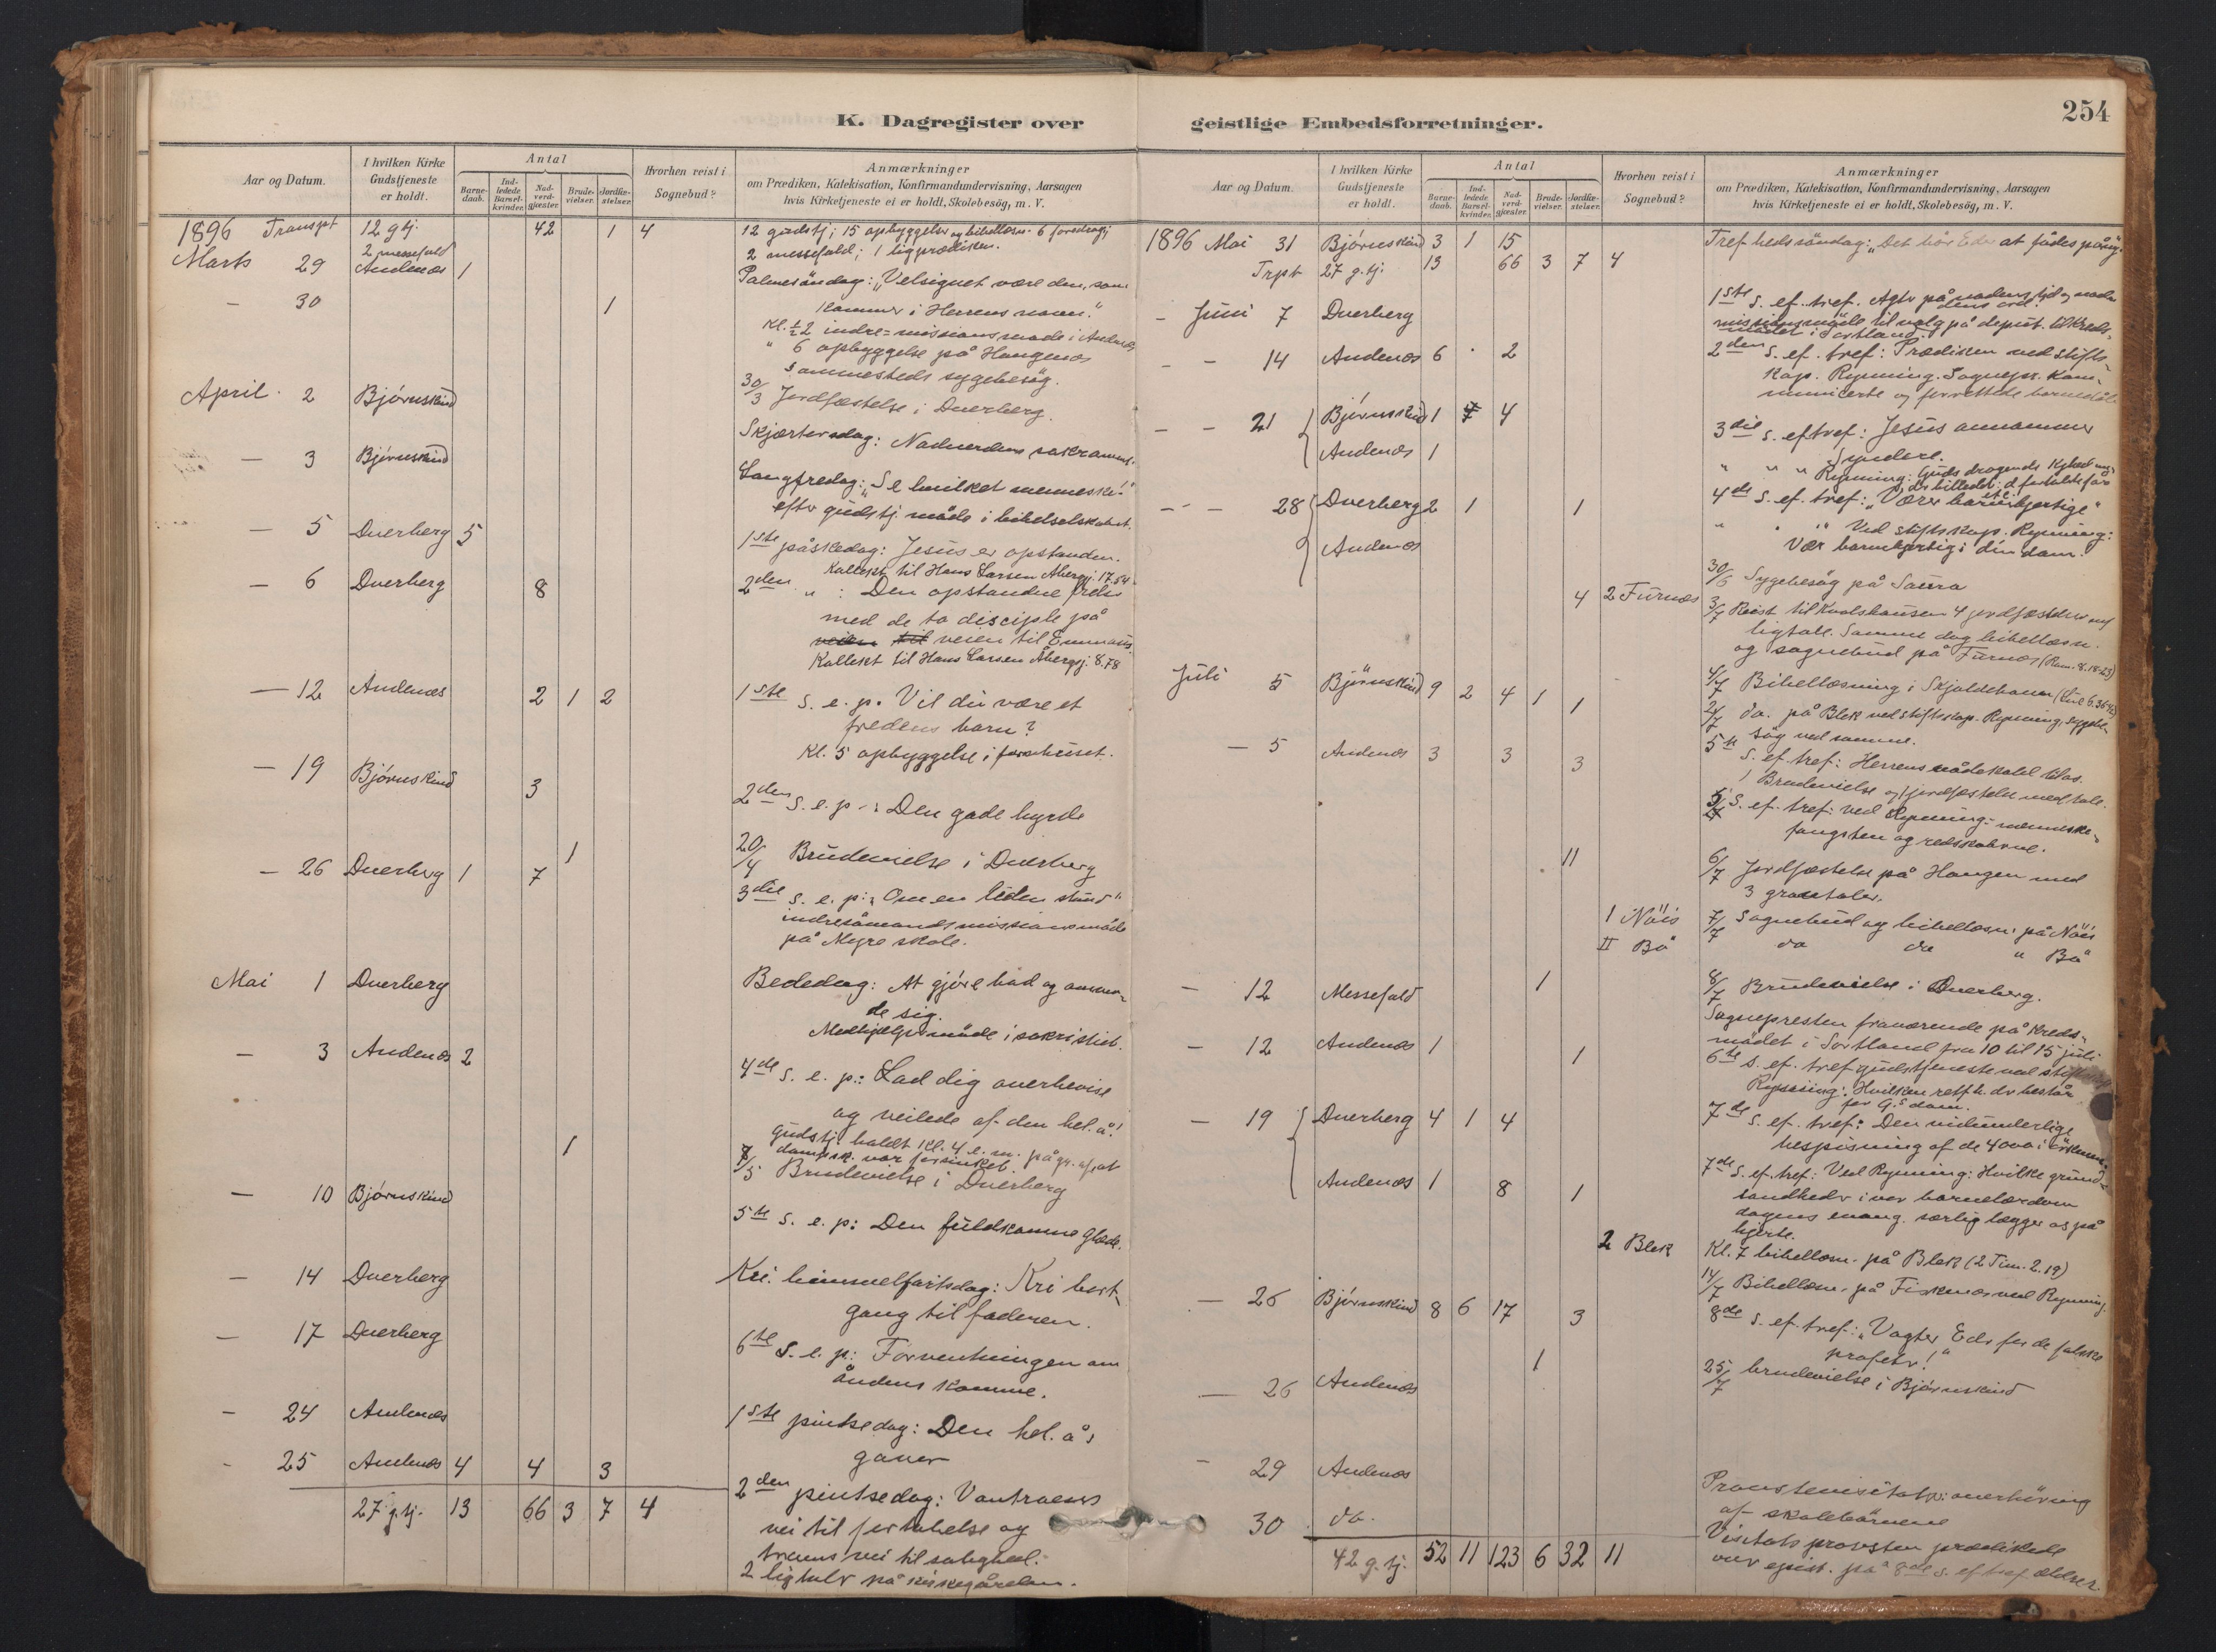 K. Dagregister over
Aar og Datum.
I hvilken Kirke Gudstjeneste er holdt.
Antal
Barnedaab.
Indledede Barselkvinder.
Nadverdgjæster.
Brudevielser.
Jordfæstelser.
Hvorhen reist i Sognebud?
Anmærkninger
om Prædiken, Katekisation, Konfirmandundervisning, Aarsagen
hvis Kirketjeneste ei er holdt, Skolebesög, m. V.
1896 Transpt 12 gtj. 42 1 4 12 gudstj; 15 opbyggelser og bibellæsn. 6 foredrag;
2 messefald 2 messefald; 1 ligprædiken.
Marts 29 Andenæs 1 Palmesöndag: "Velsignet være den, som
kommer i Herrens navn."
- 30 1
Kl. ½2 indre-missionsmøde i Andenæs
" 6 opbyggelse på Haugenæs
sammesteds sygebesög.
30/3 Jordfæstelse i Dverberg.
April 2 Bjørnskind Skjærtorsdag: Nadverdens sakrament.
- 3 Bjørnskind Langfredag: "Se hvilket menneske!"
efter gudstj. møde i bibelselskabet.
- 5 Dverberg 5 1ste påskedag: Jesus er opstanden.
Kollekt til Hans Larsen Åbergsj. 17.54
- 6 Dverberg 8 2den " : Den opstandne frelser
med de to disciple på
veien til veien til Emmaus.
Kollekt til Hans Larsen Åbergsj. 8.78
- 12 Andenæs 2 1 2 1ste s. e. p. Vil du være et
fredens barn?
Kl. 5 opbyggelse i
- 19 Bjørnskind 3 2den s. e. p.: Den gode hyrde
1 20/4 Brudevielse i Dverberg
- 26 Dverberg 1 7 3die s. e. p.: "Om en liden stund"
indresömandsmissionsmøde
på Myre skole.
Mai 1 Dverberg Bededag: At gjøre bod og omven-
de sig.
Medhjælpermøde i sakristiet.
- 3 Andenæs 2 4de s. e. p.: Lad dig overbevise
og veilede af den hel. å!
Gudstj. holdt kl. 4 e. m. på gr. af, at
dampsk. var forsinket.
1 7/5 Brudevielse i Dverberg
- 10 Bjørnskind 5te s. e. p: Den fuldkomne glæde.
- 14 Dverberg Kri. himmelfartsdag: Kri bort-
gang til faderen.
- 17 Dverberg 6te s. e. p: Forventningen om
åndens komme.
- 24 Andenæs 1ste pintsedag: Den hel. å's
gaver
- 25 Andenæs 4 4 3
2den pintsedag: Vantroens
vei til fortabelse og
troens vei til salighed.
2 ligtaler på kirkegården.
27 g.tj. 13 66 3 7 4
254
geistlige Embedsforretninger.
Aar og Datum.
I hvilken Kirke Gudstjeneste er holdt.
Antal
Barnedaab.
Indledede Barselkvinder.
Nadverdgjæster.
Brudevielser.
Jordfæstelser.
Hvorhen reist i Sognebud?
Anmærkninger
om Prædiken, Katekisation, Konfirmandundervisning, Aarsagen
hvis Kirketjeneste ei er holdt, Skolebesög, m. V.
1896 Mai 31 Bjørnskind 3 1 15 Trefhedssöndag: "Det bör Eder at fødes påny."
Trpt 27 g.tj. 13 66 3 7 4
- Juni 7 Dverberg 1ste s. ef. tref. Agt på nadens tid og
missionsmøde til valg på deput. til kreds-
mødet i Sortland.
- - 14 Andenæs 6 2 2den s. ef. tref: Prædiken ved stifts-
kap. Rynning. Sognepr. kom-
municerte og forrettede barnedåb
- - 21 Bjørnskind 1 4 3die s. ef tref: Jesus annammer
Syndere.
Andenæs 1 " " " Rynning: Guds dragende kjærlighed
- - 28 Dverberg 2 1 1 4de s. ef. tref: "Værer barmhjertige"
Andenæs " " " Ved stiftskap. Rynning:
Vær barmhjertig i din dom.
30/6 Sygebesög på Saura
4 2 Furnæs 3/7 Reist til Kvalshausen 4 jordfæstelser m
ligtale. Samme dag bibellæsn.
og sognebud på Furnæs (Rom. 8.18-23)
4/7 Bibellæsning i Skjoldehavn (Luc 6.36-42)
Juli 5 Bjørnskind 9 2 4 1 1 do. på Blek ved stiftskap. Rynning, sygebe-
sög ved samme.
5te s. ef. tref: Herrens nådekald til os.
1 Brudevielse og 1 jordfæstelse med tale.
- 5 Andenæs 3 3 3 s. ef. tref: ved Rynning: menneske-
fangsten og redskaberne.
11 6/7 Jordfæstelse på Haugen med
3 gravtaler.
1 Nöis 7/7 Sognebud og bibellæsn. på Nöis
II Bö do do " Bö
1 8/7 Brudevielse i Dverberg.
- 12 Messefald Sognepresten fraværende på kreds-
mödet i Sortland fra 10 til 15 juli
- 12 Andenæs 1 1 6te s. ef. tref gudstjeneste ved
Rynning: Hvilken retf.h. der består
for G.s dom.
- 19 Dverberg 4 1 4 7de s. ef. tref: Den vidunderlige
bespisning af de 4000 i örkenen
Andenæs 1 8 1 7de s. ef. tref: Ved Rynning: Hvilke grund-
sandheder i vor barnelærdom
dagens evang. særlig lægger os på
hjerte.
2 Blek Kl. 7 bibellæsn. på Blek (2 Tim. 2.19)
14/7 Bibellæsn. på Fiskenæs ved Rynning.
- 26 Bjørnskind 8 6 17 3 8de s. ef. tref: "Vogter Eder for de falske
profeter!"
1 25/7 brudevielse i Bjørnskind
- 26 Andenæs
- 29 Andenæs Provstevisitats: overhöring
af skolebörnene
30 do. Visitats provsten prædikede
over epist. på 8de s. ef tref
42 g.tj. 52 11 123 6 32 11